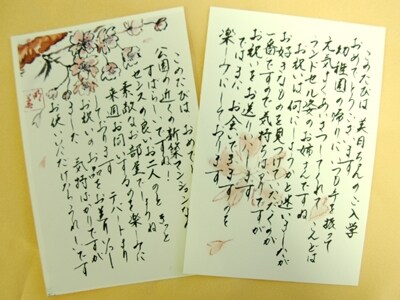 このたびは 美月ちゃんのご入学
おめでとうございます
幼稚園の帰りに いつも手を振って
元気よくあいさつしてくれて こんどは
ランドセル姿のお姉さんですね
お祝いは何にしようかと迷いましたが
お好きなものを見つけていただくのが
一番ですので気持ちばかりですが
お祝いをお送りします
ではまた お会いできますのを
楽しみにしております
このたびは おめでとう
公園の近くの新築マンションなん
すばらしいですね きっと
センスの良いお二人のこと
素敵なお部屋でしょうね
来週 お伺いするのを楽しみに
しております デパートより
お祝いのお品をお送りいたし
ました 気持ばかりですが
お使いいただけたらうれしいです